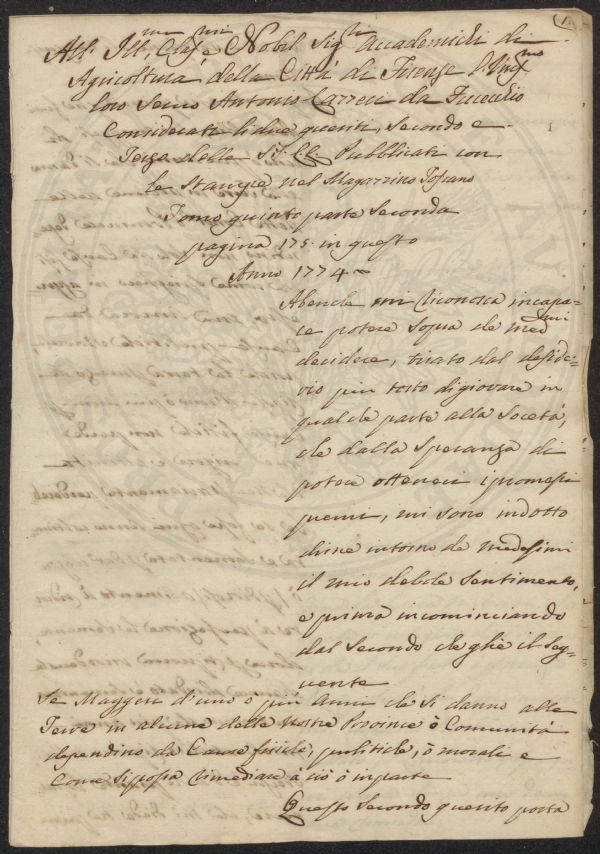 1.
All. Ill.mi, Clar.mi e Nobil Sig.ri Accademici di
Agricoltura della Città di Firenze l'
loro Servo Antonio Carreri da Fucecchio
Considerati li due quesiti, Secondo e
Terzo delle SS. LL. Pubblicati con
le Stampe nel Magazzino Toscano
Tomo quinto parte Seconda
pagina 175. in questo
Anno 1774
Abenche mi riconosca incapa=
ce potere sopra de med.mi
decidere, tirato dal deside=
rio piu tosto di giovare in
qualche parte alla Società,
che dalla Speranza di
potere ottenere i promessi
premi, mi sono indotto
dirne intorno de medesimi
il mio debole Sentimento,
e prima incominciando
dal Secondo che ghiè il Seg=
uente
Se Maggesi d'uno ó piu Anni che Si danno alle
Terre in alcune delle Nostre Province ó Comunità
dependino da Cause fisiche, politiche, ó morali e
Come Si possa rimediare à ciò ó in parte
Questo Secondo quesito porta